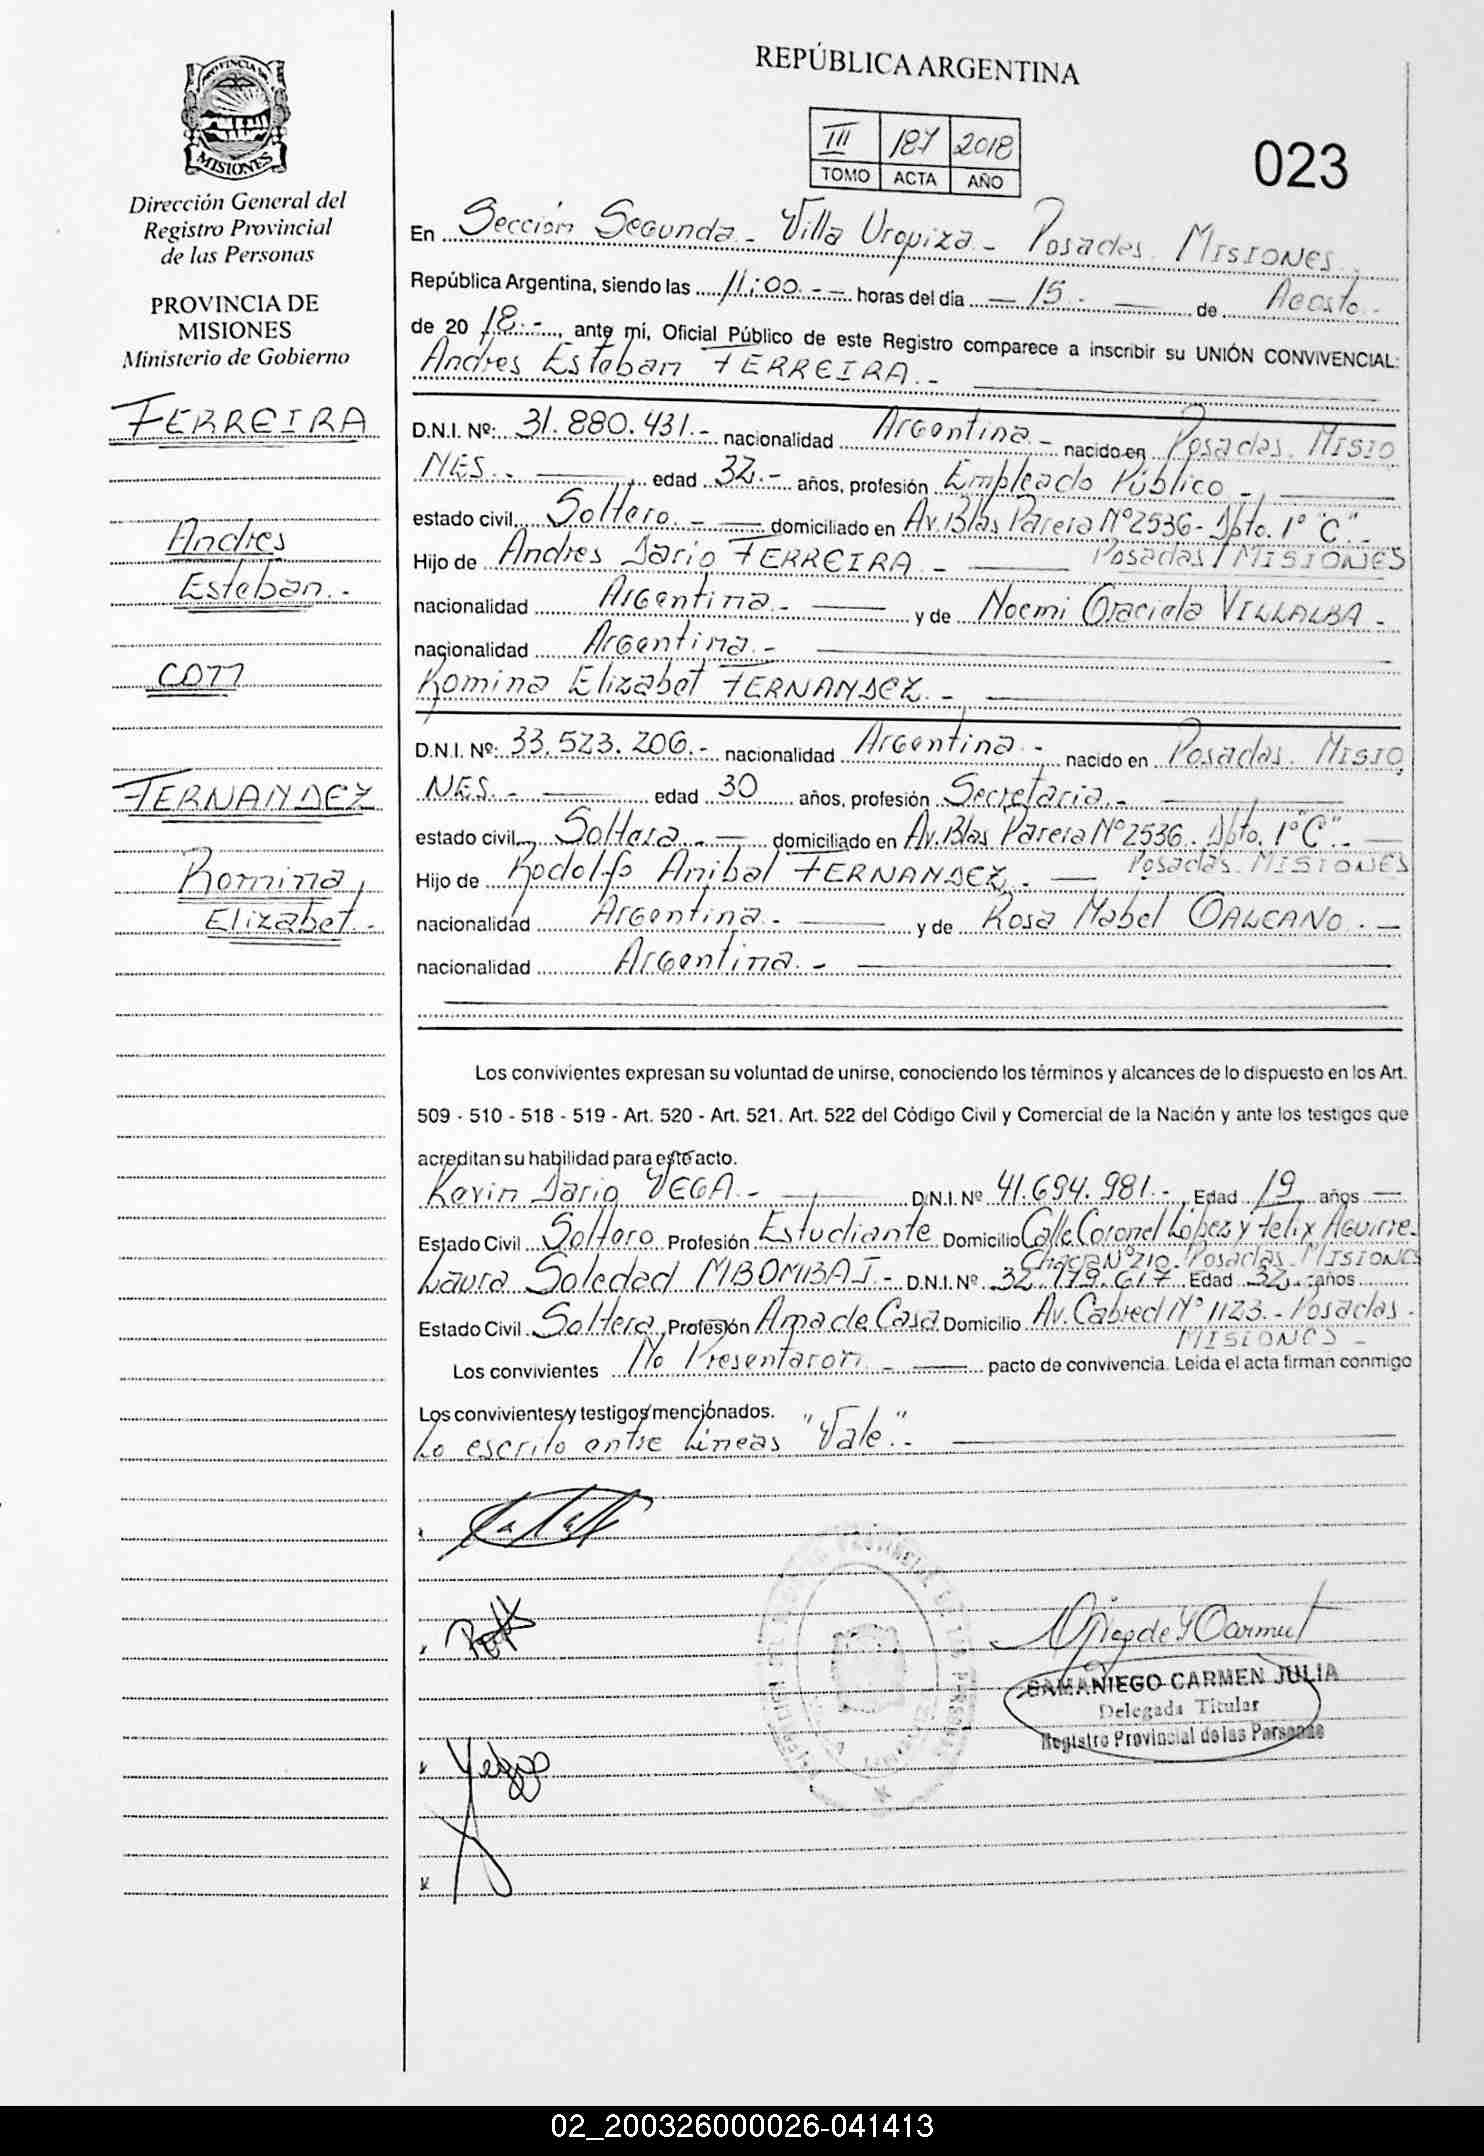 REPÚBLICA ARGENTINA
III 187 2018
TOMO ACTA AÑO
023
MISIONES
Dirección General del
Registro Provincial
de las Personas
PROVINCIA DE
MISIONES
Ministerio de Gobierno
FERREIRA
Andres
Esteban.-
con
FERNANDEZ
Romina
Elizabet.-
En Sección Segunda - Villa Urquiza - Posadas. MISIONES.
República Argentina, siendo las 11:00.-- horas del día — 15.- — de Agosto.-
de 20 18.-, ante mí, Oficial Público de este Registro comparece a inscribir su UNIÓN CONVIVENCIAL:
Andres Esteban FERREIRA.-
D.N.I. Nº: 31.880.431.- nacionalidad Argentina.- nacido en Posadas. MISIO
NES.- edad 32.- años, profesión Empleado Público -,
estado civil Soltero.- domiciliado en Av. Blas Parera Nº2536- Dpto. 1º "C".-
Posadas / MISIONES
Hijo de Andres Dario FERREIRA.-
nacionalidad Argentina.- y de Noemi Graciela VILLALBA.-
nacionalidad Argentina.-
Romina Elizabet FERNANDEZ.-
D.N.I. Nº: 33.523.206.- nacionalidad Argentina.- nacido en Posadas. MISIO
NES.- edad 30 años, profesión Secretaria.-
estado civil Soltera.- domiciliado en Av. Blas Parera Nº2536. Dpto. 1º "C".-
Posadas. MISIONES
Hijo de Rodolfo Anibal FERNANDEZ.-
nacionalidad Argentina.- y de Rosa Mabel GALEANO.-
nacionalidad Argentina.-
Los convivientes expresan su voluntad de unirse, conociendo los términos y alcances de lo dispuesto en los Art.
509 - 510 - 518 - 519 - Art. 520 - Art. 521. Art. 522 del Código Civil y Comercial de la Nación y ante los testigos que
acreditan su habilidad para este acto.
Kevin Dario VEGA.- D.N.I. Nº 41.694.981.- Edad 19 años
Estado Civil Soltero Profesión Estudiante Domicilio Calle Coronel Lopez y Felix Aguirre.
Chacra Nº 210. Posadas. MISIONES
Laura Soledad MBOMBAJ.- D.N.I. Nº 32.179.617 Edad 32.- años
Estado Civil Soltera Profesión Ama de Casa Domicilio Av. Cabred Nº 1123.- Posadas.
MISIONES.-
Los convivientes No Presentaron.- pacto de convivencia. Leída el acta firman conmigo
Los convivientes y testigos mencionados.
Lo escrito entre líneas "Vale".-
SAMANIEGO CARMEN JULIA
Delegada Titular
Registro Provincial de las Personas
02_200326000026-041413